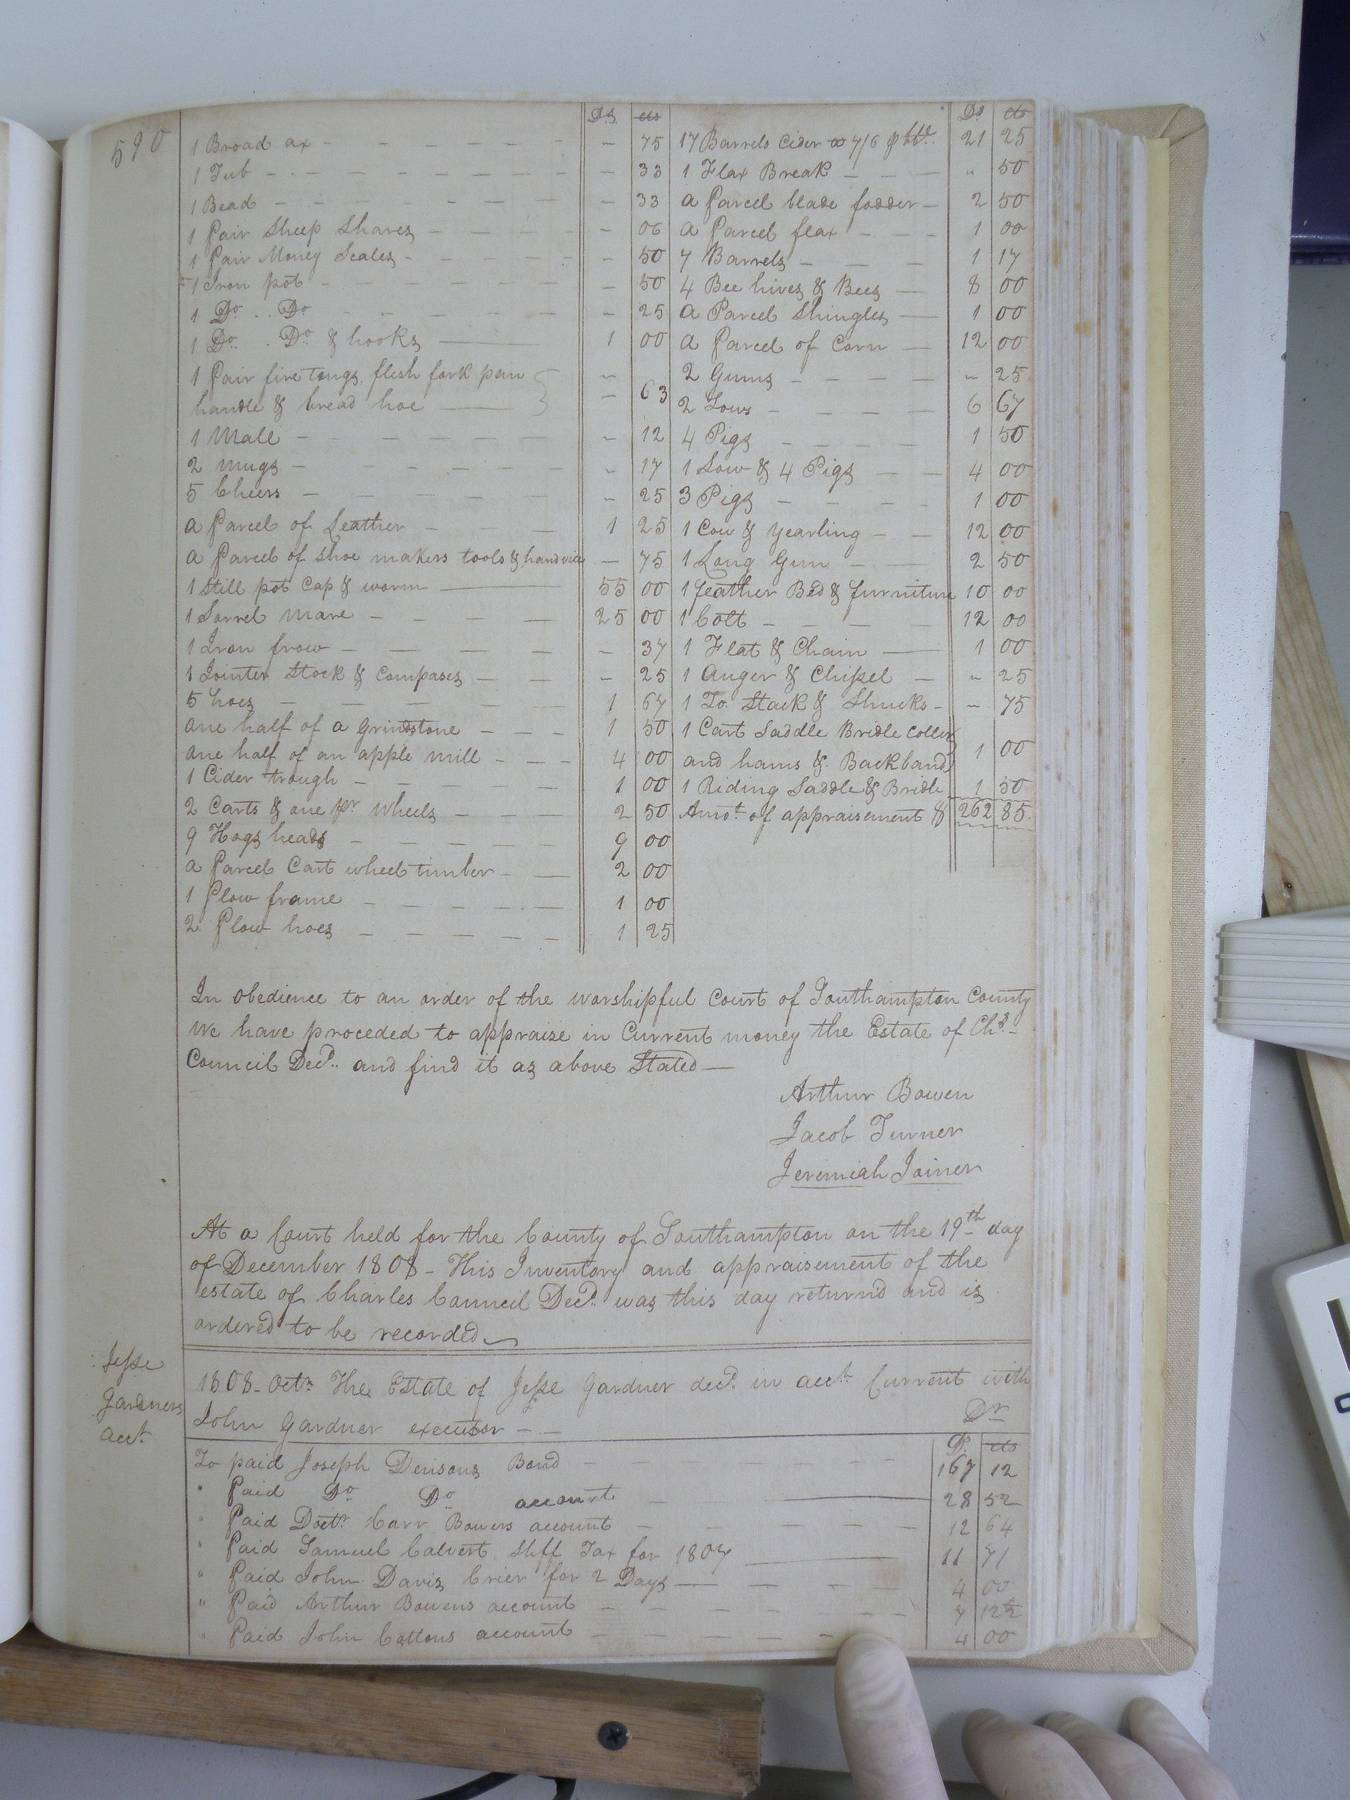 590
Ds cts
1 Broad ax - 75
1 Tub - 33
1 Bead - 33
1 Pair Sheep Shares - 06
1 Pair Money Scales - 50
1 Iron pot - 50
1 Do .. Do - 25
1 Do . Do & hooks 1 00
1 Pair fire tongs flesh fork pan
handle & bread hoe - 63
1 Male - 12
2 mugs - 17
5 Cheers - 25
a Parcel of Leather 1 25
a Parcel of Shoe makers tools & hand vice - 75
1 Still pot Cap & worm 55 00
1 Sorrel Mare 25 00
1 Iron frow - 37
1 Jointer Stock & Compases - 25
5 hoes 1 67
one half of a Grindstone 1 50
one half of an apple mill 4 00
1 Cider trough 1 00
2 Carts & one pr wheels 2 50
9 Hogsheads 9 00
a Parcel Cart wheel timber 2 00
1 Plow frame 1 00
2 Plow hoes 1 25
Ds cts
17 Barrels Cider @ 7/6 21 25
1 Flax Break " 50
a Parcel blade fodder 2 50
a Parcel flax 1 00
7 Barrels 1 17
4 Bee hives & Bees 8 00
a Parcel Shingles 1 00
a Parcel of Corn 12 00
2 Gums - 25
2 Sows 6 67
4 Pigs 1 50
1 Sow & 4 Pigs 4 00
3 Pigs 1 00
1 Cow & Yearling 12 00
1 Long Gun 2 50
1 feather Bed & furniture 10 00
1 Colt 12 00
1 Flat & Chain 1 00
1 Auger & Chissel " 25
1 To. Stack & Shucks - 75
1 Cart Saddle Bridle Coller
and hams & Backband 1 00
1 Riding Saddle & Bridle 1 50
Amot. of appraisement $ 262 85
In obedience to an order of the worshipful Court of Southampton County
We have proceded to appraise in Current money the Estate of Chs.
Council Decd. and find it as above Stated
Arthur Bowen
Jacob Turner
Jeremiah Joiner
At a Court held for the County of Southampton on the 19th day
of December 1808 - This Inventory and appraisement of the
estate of Charles Council Decd. was this day returnd and is
ordered to be recorded
Jesse
Gardners
acct.
1808. Octr The Estate of Jesse Gardner decd. in acct. Current with
John Gardner executor Dr
D. cts
To paid Joseph Densons Bond 167 12
" Paid Do Do account 28 52
" Paid Doctr Carr Bowers account 12 64
" Paid Samuel Calvert Shff Tax for 1807 11 71
" Paid John Davis Crier for 2 Days 4 00
" Paid Arthur Bowens account 7 12½
" Paid John Cottons account 4 00